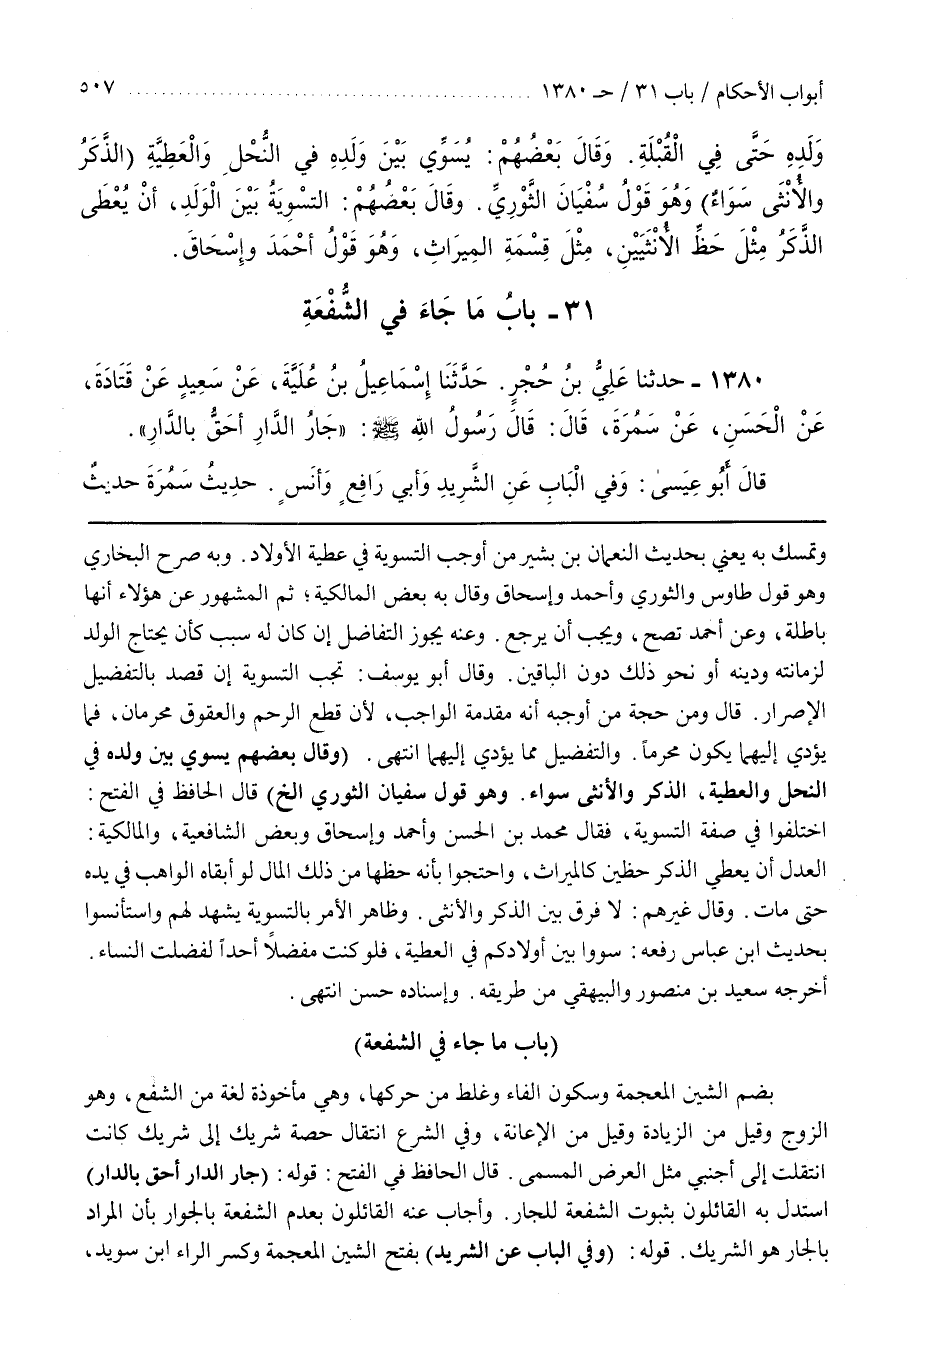 أبواب الأحكام / باب ٣١ / حـ ١٣٨٠ ........................................ ٥٠٧
وَلَدِهِ حَتَّى فِي الْقُبْلَةِ. وَقَالَ بَعْضُهُمْ: يُسَوِّي بَيْنَ وَلَدِهِ في النُّحْلِ وَالْعَطِيَّةِ (الذَّكَرُ
والأُنْثَى سَوَاءٌ) وَهُوَ قَوْلُ سُفْيَانَ الثَّوْرِيِّ. وقَالَ بَعْضُهُمْ: التسْوِيَةُ بَيْنَ الْوَلَدِ، أنْ يُعْطَى
الذَّكَرُ مِثْلَ حَظِّ الأُنْثَيَيْنِ، مِثْلَ قِسْمَةِ المِيرَاثِ، وَهُوَ قَوْلُ أحْمَدَ وإسْحَاقَ.
٣١ - بابُ مَا جَاءَ في الشُّفْعَةِ
١٣٨٠ - حدثنا عَلِيُّ بنُ حُجْرٍ. حَدَّثَنَا إسْمَاعِيلُ بنُ عُلَيَّةَ، عَنْ سَعِيدٍ عَنْ قَتَادَةَ،
عَنْ الْحَسَنِ، عَنْ سَمُرَةَ، قَالَ: قَالَ رَسُولُ الله ﷺ: «جَارُ الدَّارِ أحَقُّ بالدَّارِ».
قالَ أَبُو عِيَسىٰ: وَفي الْبَابِ عَنِ الشَّرِيدِ وَأبي رَافِعٍ وَأنَسٍ. حدِيثُ سَمُرَةَ حديثٌ
وتمسك به يعني بحديث النعمان بن بشير من أوجب التسوية في عطية الأولاد. وبه صرح البخاري
وهو قول طاوس والثوري وأحمد وإسحاق وقال به بعض المالكية؛ ثم المشهور عن هؤلاء أنها
باطلة، وعن أحمد تصح، ويجب أن يرجع. وعنه يجوز التفاضل إن كان له سبب كأن يحتاج الولد
لزمانته ودينه أو نحو ذلك دون الباقين. وقال أبو يوسف: تجب التسوية إن قصد بالتفضيل
الإصرار. قال ومن حجة من أوجبه أنه مقدمة الواجب، لأن قطع الرحم والعقوق محرمان، فما
يؤدي إليهما يكون محرماً. والتفضيل مما يؤدي إليهما انتهى. (وقال بعضهم يسوي بين ولده في
النحل والعطية، الذكر والأنثى سواء. وهو قول سفيان الثوري الخ) قال الحافظ في الفتح:
اختلفوا في صفة التسوية، فقال محمد بن الحسن وأحمد وإسحاق وبعض الشافعية، والمالكية:
العدل أن يعطي الذكر حظين كالميراث، واحتجوا بأنه حظها من ذلك المال لو أبقاه الواهب في يده
حتى مات. وقال غيرهم: لا فرق بين الذكر والأنثى. وظاهر الأمر بالتسوية يشهد لهم واستأنسوا
بحديث ابن عباس رفعه: سووا بين أولادكم في العطية، فلو كنت مفضلاً أحداً لفضلت النساء.
أخرجه سعيد بن منصور والبيهقي من طريقه. وإسناده حسن انتهى.
(باب ما جاء في الشفعة)
بضم الشين المعجمة وسكون الفاء وغلط من حركها، وهي مأخوذة لغة من الشفع، وهو
الزوج وقيل من الزيادة وقيل من الإعانة، وفي الشرع انتقال حصة شريك إلى شريك كانت
انتقلت إلى أجنبي مثل العرض المسمى. قال الحافظ في الفتح: قوله: (جار الدار أحق بالدار)
استدل به القائلون بثبوت الشفعة للجار. وأجاب عنه القائلون بعدم الشفعة بالجوار بأن المراد
بالجار هو الشريك. قوله: (وفي الباب عن الشريد) بفتح الشين المعجمة وكسر الراء ابن سويد،